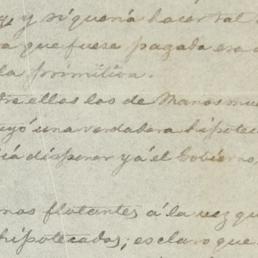 y si queria hacer tal
que fuese pagada esa
la primitiva.
tre ellas las de Manos mu
uyó una verdadera hipotec
ia disponer ya el Gobierno,
nas flotantes á la vez qu
hipotecados; es claro que